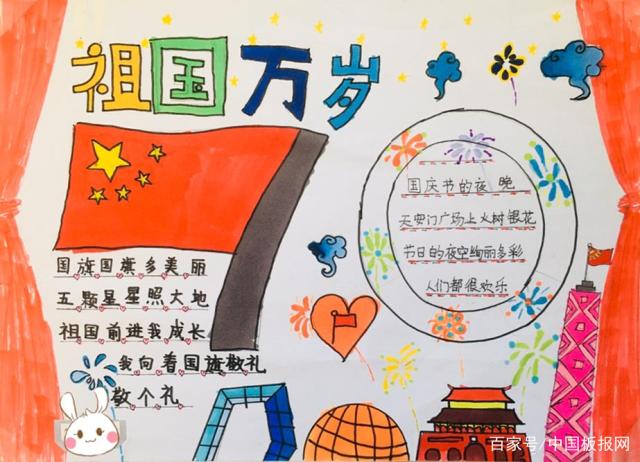 祖国万岁
国旗国旗多美丽
五颗星星照大地
祖国前进我成长
我向着国旗敬礼
敬个礼
国庆节的夜晚
天安门广场上火树银花
节日的夜空绚丽多彩
人们都很欢乐
百家号/中国板报网